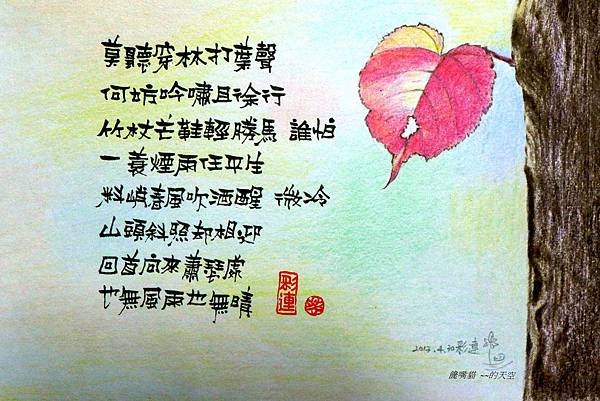 莫聽穿林打葉聲
何妨吟嘯且徐行
竹杖芒鞋輕勝馬 誰怕
一蓑煙雨任平生
料峭春風吹酒醒 微冷
山頭斜照却相迎
回首向來蕭瑟處
也無風雨也無晴
彩連
彩連
饞嘴貓 ~~的天空